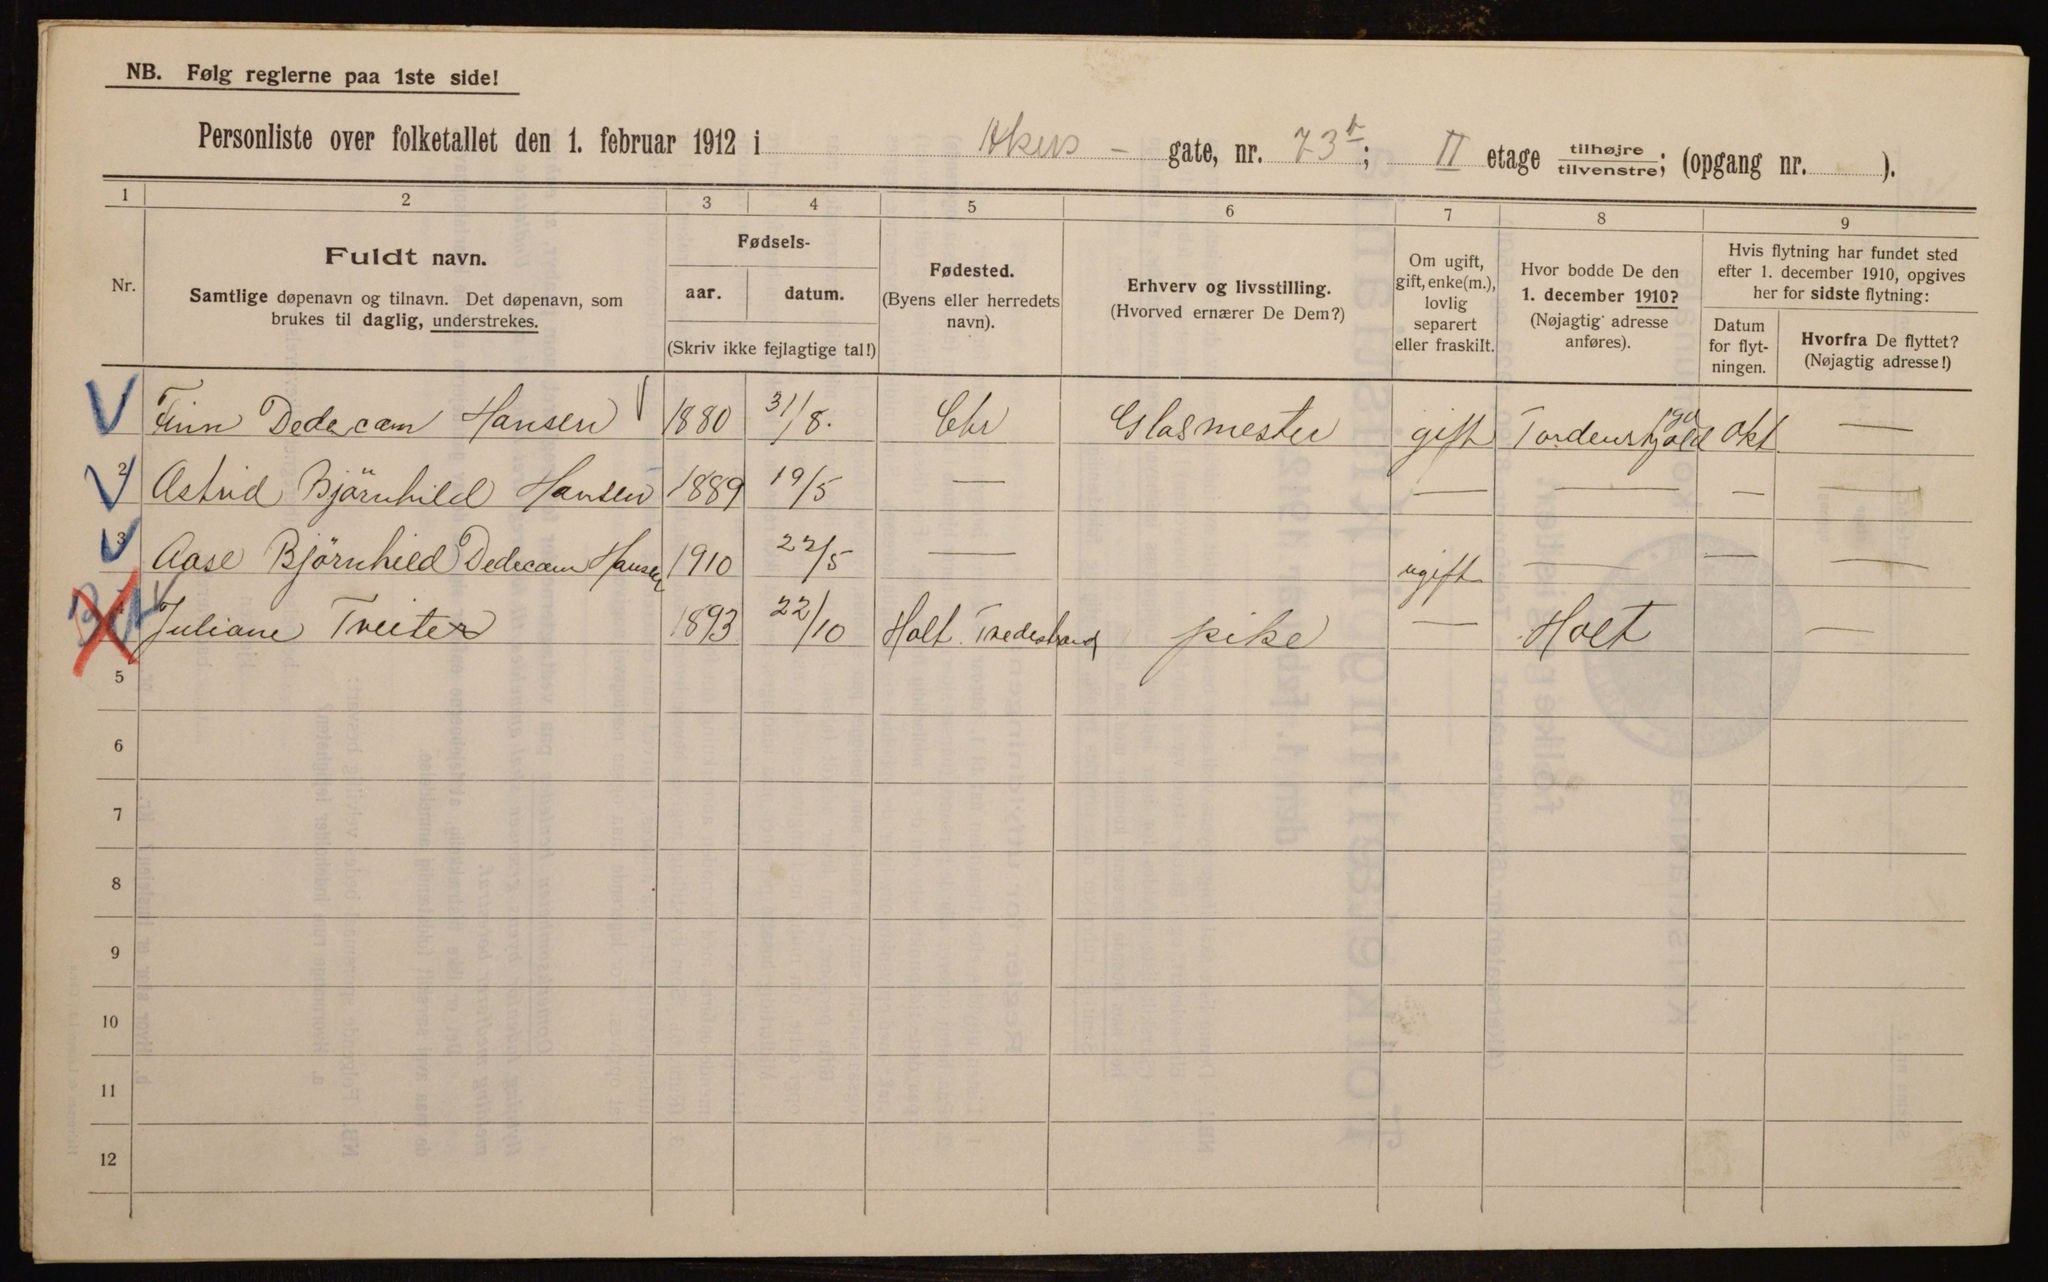 NB. Følg reglerne paa 1ste side!
Personliste over folketallet den 1. februar 1912 i Akers - gate, nr. 73 b; II etage tilhøjre tilvenstre; (opgang nr. ).
1 2 3 4 5 6 7 8 9
Nr.
Fuldt navn.
Samtlige døpenavn og tilnavn. Det døpenavn, som
brukes til daglig, understrekes.
Fødsels-
aar. datum.
(Skriv ikke fejlagtige tal!)
Fødested.
(Byens eller herredets
navn).
Erhverv og livsstilling.
(Hvorved ernærer De Dem?)
Om ugift,
gift, enke(m.),
lovlig
separert
eller fraskilt.
Hvor bodde De den
1. december 1910?
(Nøjagtig adresse
anføres).
Hvis flytning har fundet sted
efter 1. december 1910, opgives
her for sidste flytning:
Datum
for flyt-
ningen.
Hvorfra De flyttet?
(Nøjagtig adresse!)
Finn Dedecam Hansen 1880 31/8. Chr Glasmester gift Tordenskjold Okt —
2 Astrid Björnhild Hansen 1889 19/5 — — — — —
3 Aase Björnhild Dedecam Hansen 1910 22/5 — ugift — — —
4 Juliane Treiter 1893 22/10 Holt Tvedestrand pike — Holt —
5
6
7
8
9
10
11
12